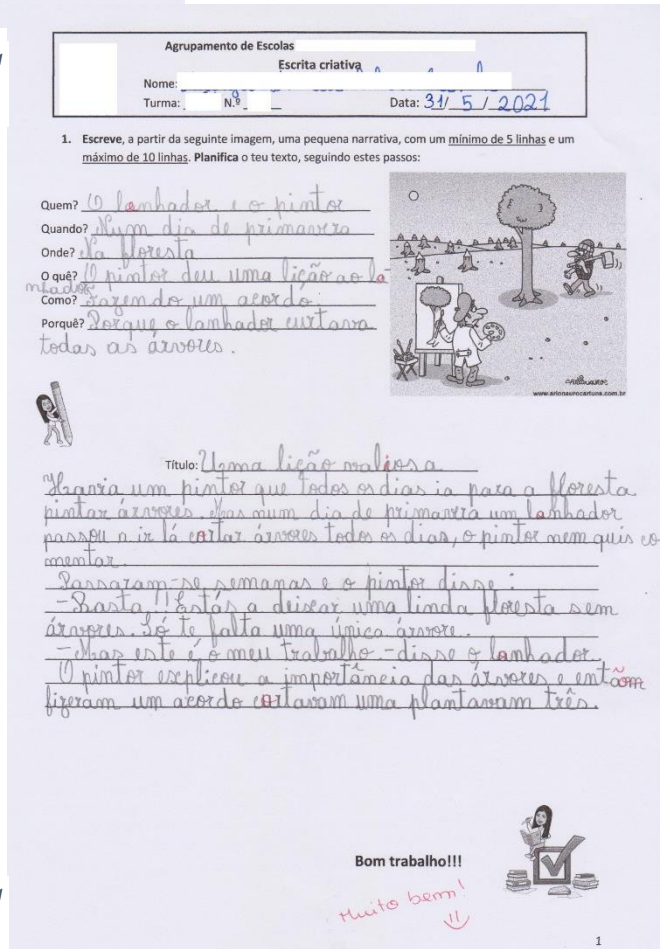 Agrupamento de Escolas
Escrita criativa
Nome:
Turma: N.º Data: 31/ 5 / 2021
1. Escreve, a partir da seguinte imagem, uma pequena narrativa, com um mínimo de 5 linhas e um
máximo de 10 linhas. Planifica o teu texto, seguindo estes passos:
Quem? O lanhador e o pintor
Quando? Num dia de primavera
Onde? Na floresta
O quê? O pintor deu uma lição ao la-
nhador
Como? Fazendo um acordo.
Porquê? Porque o lanhador curtava
todas as árvores.
arionauro
www.arionaurocartuns.com.br
Título: Uma lição valiosa
Havia um pintor que todos os dias ia para a floresta
pintar árvores. Mas num dia de primavera um lanhador
passou a ir lá cortar árvores todos os dias, o pintor nem quis co
mentar.
Passaram-se semanas e o pintor disse:
- Basta!! Estás a deixar uma linda floresta sem
árvores. Só te falta uma única árvore.
- Mas este é o meu trabalho. - disse o lanhador.
O pintor explicou a importância das árvores e então
fizeram um acordo cortavam uma plantavam três.
Bom trabalho!!!
Muito bem!
1